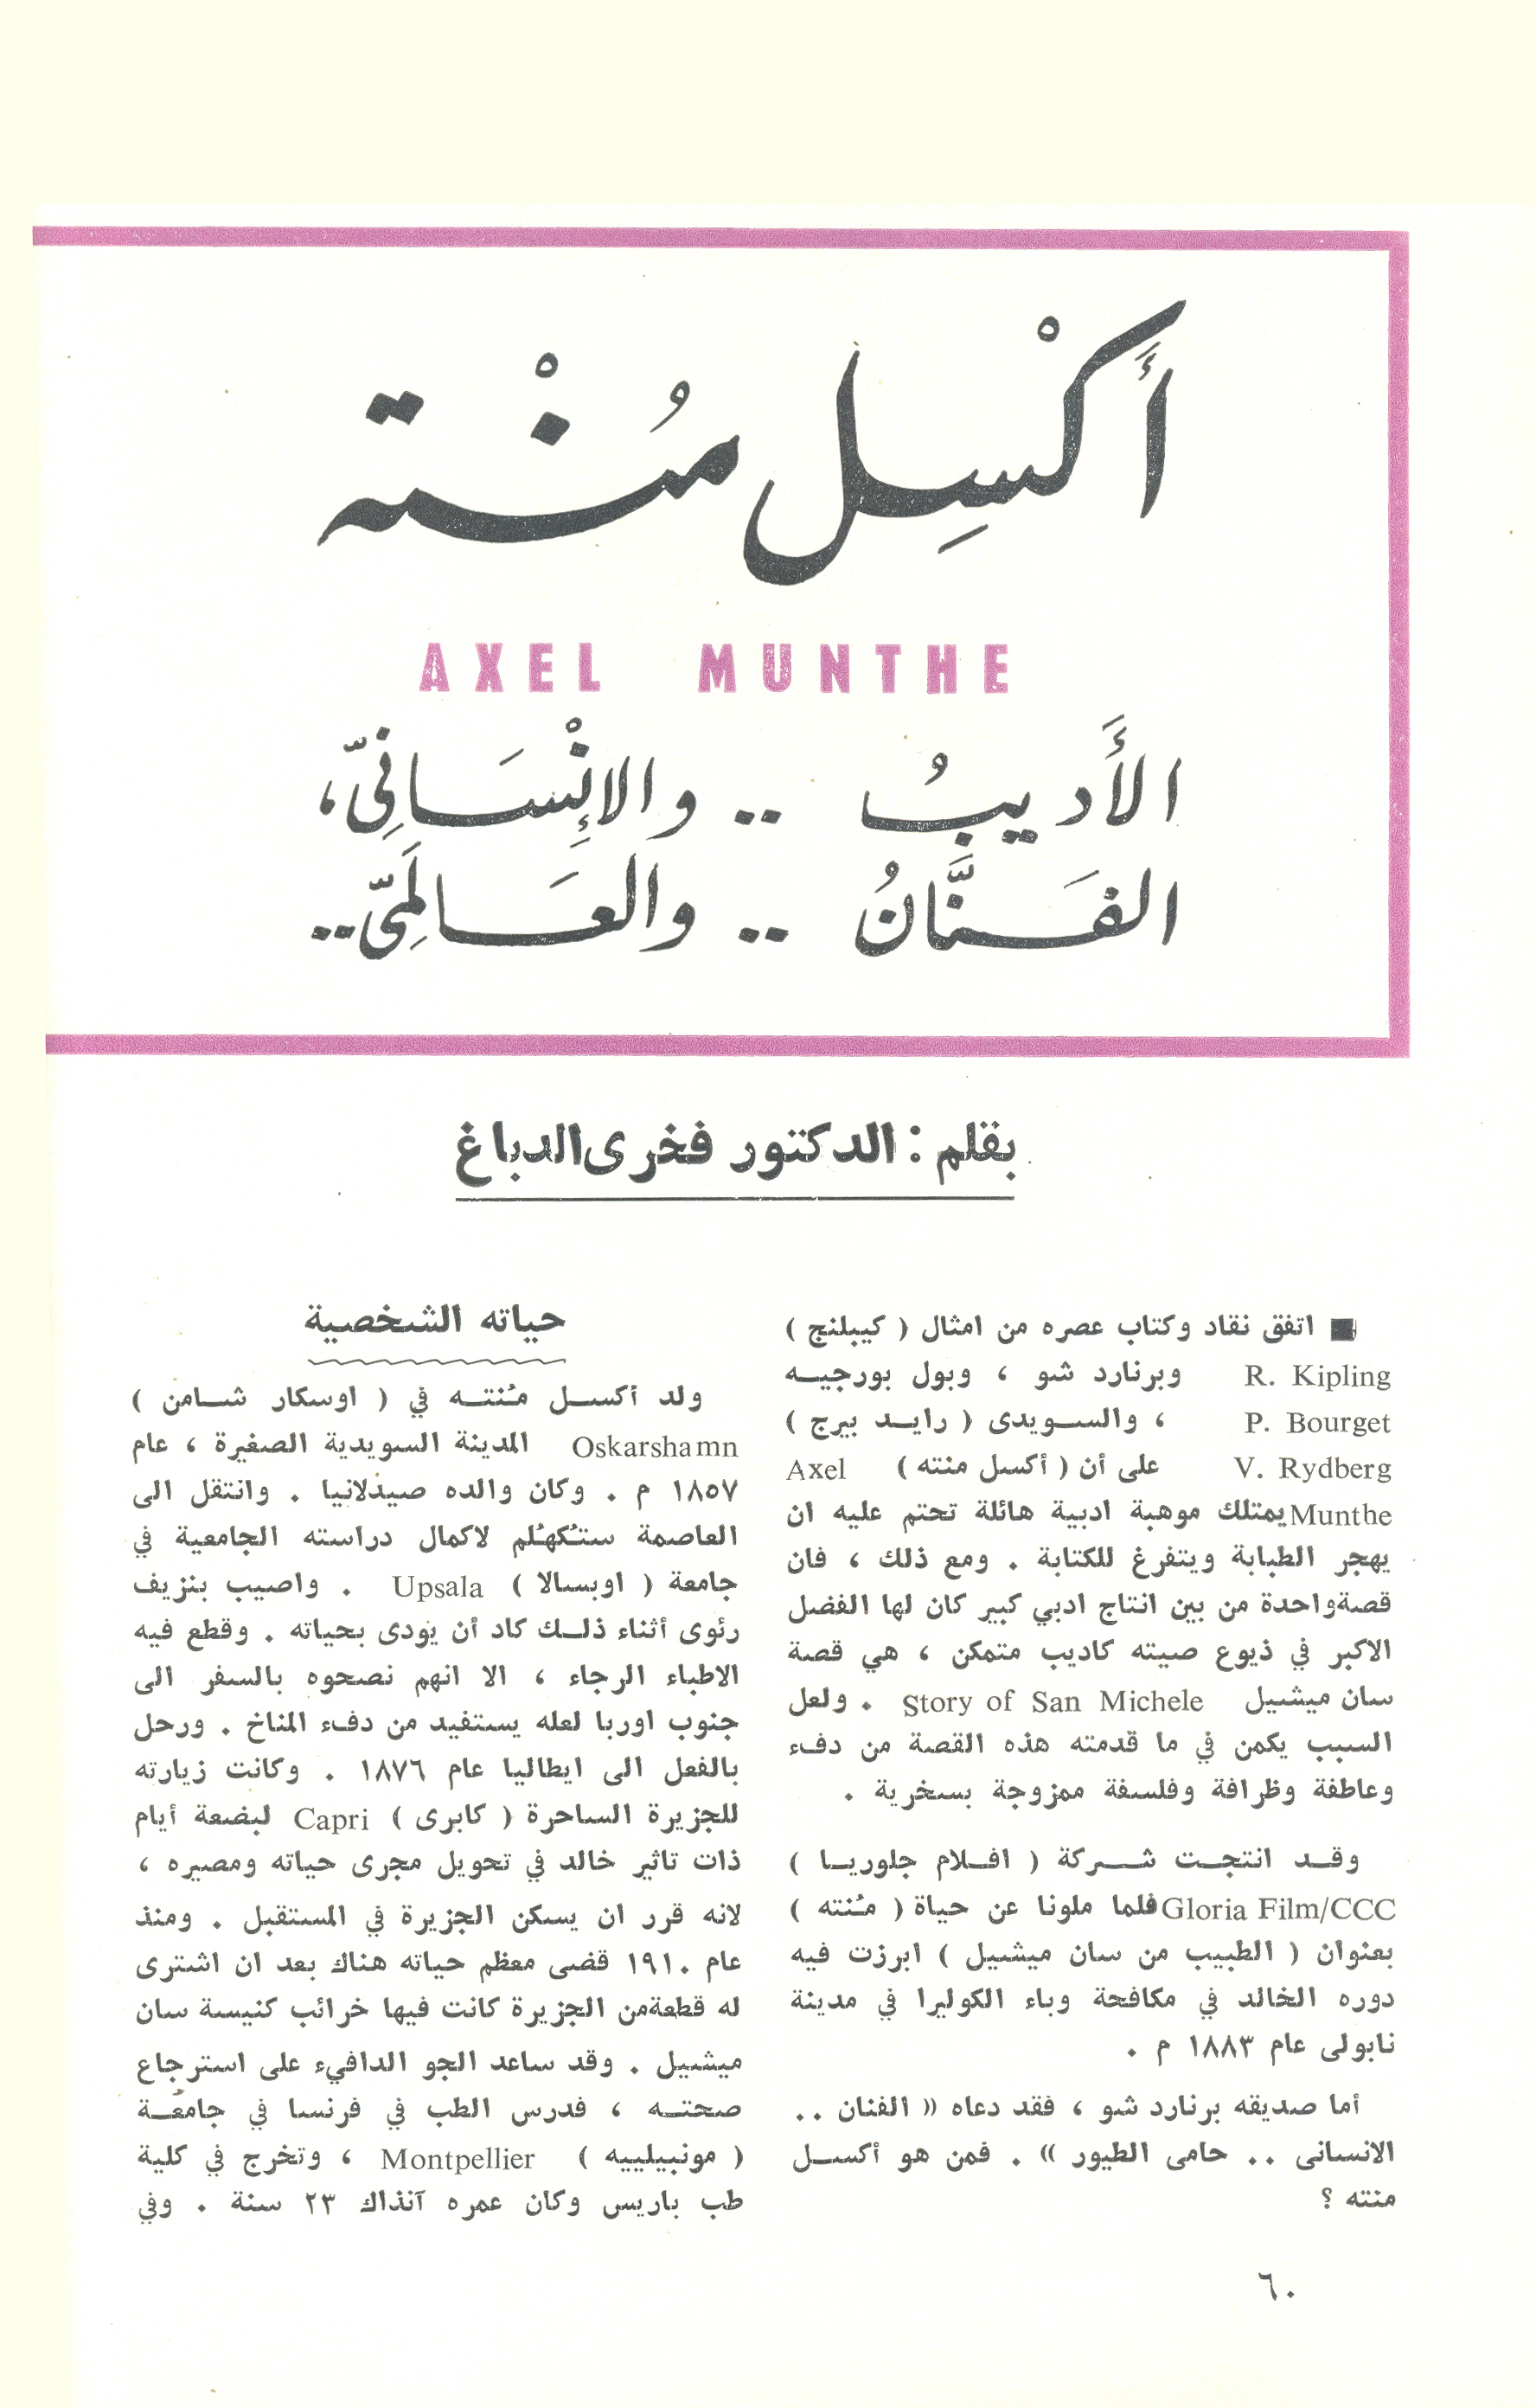 أَكْسِل مُنْته
AXEL MUNTHE
الأَديبُ .. والإِنْسَانِيّ،
الفَنَّانُ .. والعَالَمِيّ..
بقلم : الدكتور فخرى الدباغ
■ اتفق نقاد وكتاب عصره من امثال ( كيبلنج )
R. Kipling وبرنارد شو ، وبول بورجيـه
P. Bourget ، والسـويدى ( رايـد بيرج )
V. Rydberg على أن ( أكسل منته ) Axel
Munthe يمتلك موهبة ادبية هائلة تحتم عليه ان
يهجر الطبابة ويتفرغ للكتابة . ومع ذلك ، فان
قصة واحدة من بين انتاج ادبي كبير كان لها الفضل
الاكبر في ذيوع صيته كاديب متمكن ، هي قصة
سان ميشيل Story of San Michele . ولعل
السبب يكمن في ما قدمته هذه القصة من دفء
وعاطفة وظرافة وفلسفة ممزوجة بسخرية .
وقـد انتجـت شـركة ( افـلام جلوريـا )
Gloria Film/CCC فلما ملونا عن حياة ( مُنته )
بعنوان ( الطبيب من سان ميشيل ) ابرزت فيه
دوره الخالد في مكافحة وباء الكوليرا في مدينة
نابولى عام ١٨٨٣ م .
أما صديقه برنارد شو ، فقد دعاه « الفنان ..
الانسانى .. حامى الطيور » . فمن هو أكسـل
منته ؟
حياته الشخصية
ولد أكسـل مُنتـه في ( اوسكار شـامن )
Oskarshamn المدينة السويدية الصغيرة ، عام
١٨٥٧ م . وكان والده صيدلانيا . وانتقل الى
العاصمة ستُكهُلم لاكمال دراسته الجامعية في
جامعة ( اوبسالا ) Upsala . واصيب بنزيف
رئوى أثناء ذلـك كاد أن يودى بحياته . وقطع فيه
الاطباء الرجاء ، الا انهم نصحوه بالسفر الى
جنوب اوربا لعله يستفيد من دفء المناخ . ورحل
بالفعل الى ايطاليا عام ١٨٧٦ . وكانت زيارته
للجزيرة الساحرة ( كابرى ) Capri لبضعة أيام
ذات تاثير خالد في تحويل مجرى حياته ومصيره ،
لانه قرر ان يسكن الجزيرة في المستقبل . ومنذ
عام ١٩١٠ قضى معظم حياته هناك بعد ان اشترى
له قطعة من الجزيرة كانت فيها خرائب كنيسة سان
ميشيل . وقد ساعد الجو الدافيء على استرجاع
صحتـه ، فدرس الطب في فرنسا في جامعـة
( مونبيلييه ) Montpellier ، وتخرج في كلية
طب باريس وكان عمره آنذاك ٢٣ سنة . وفي
٦٠